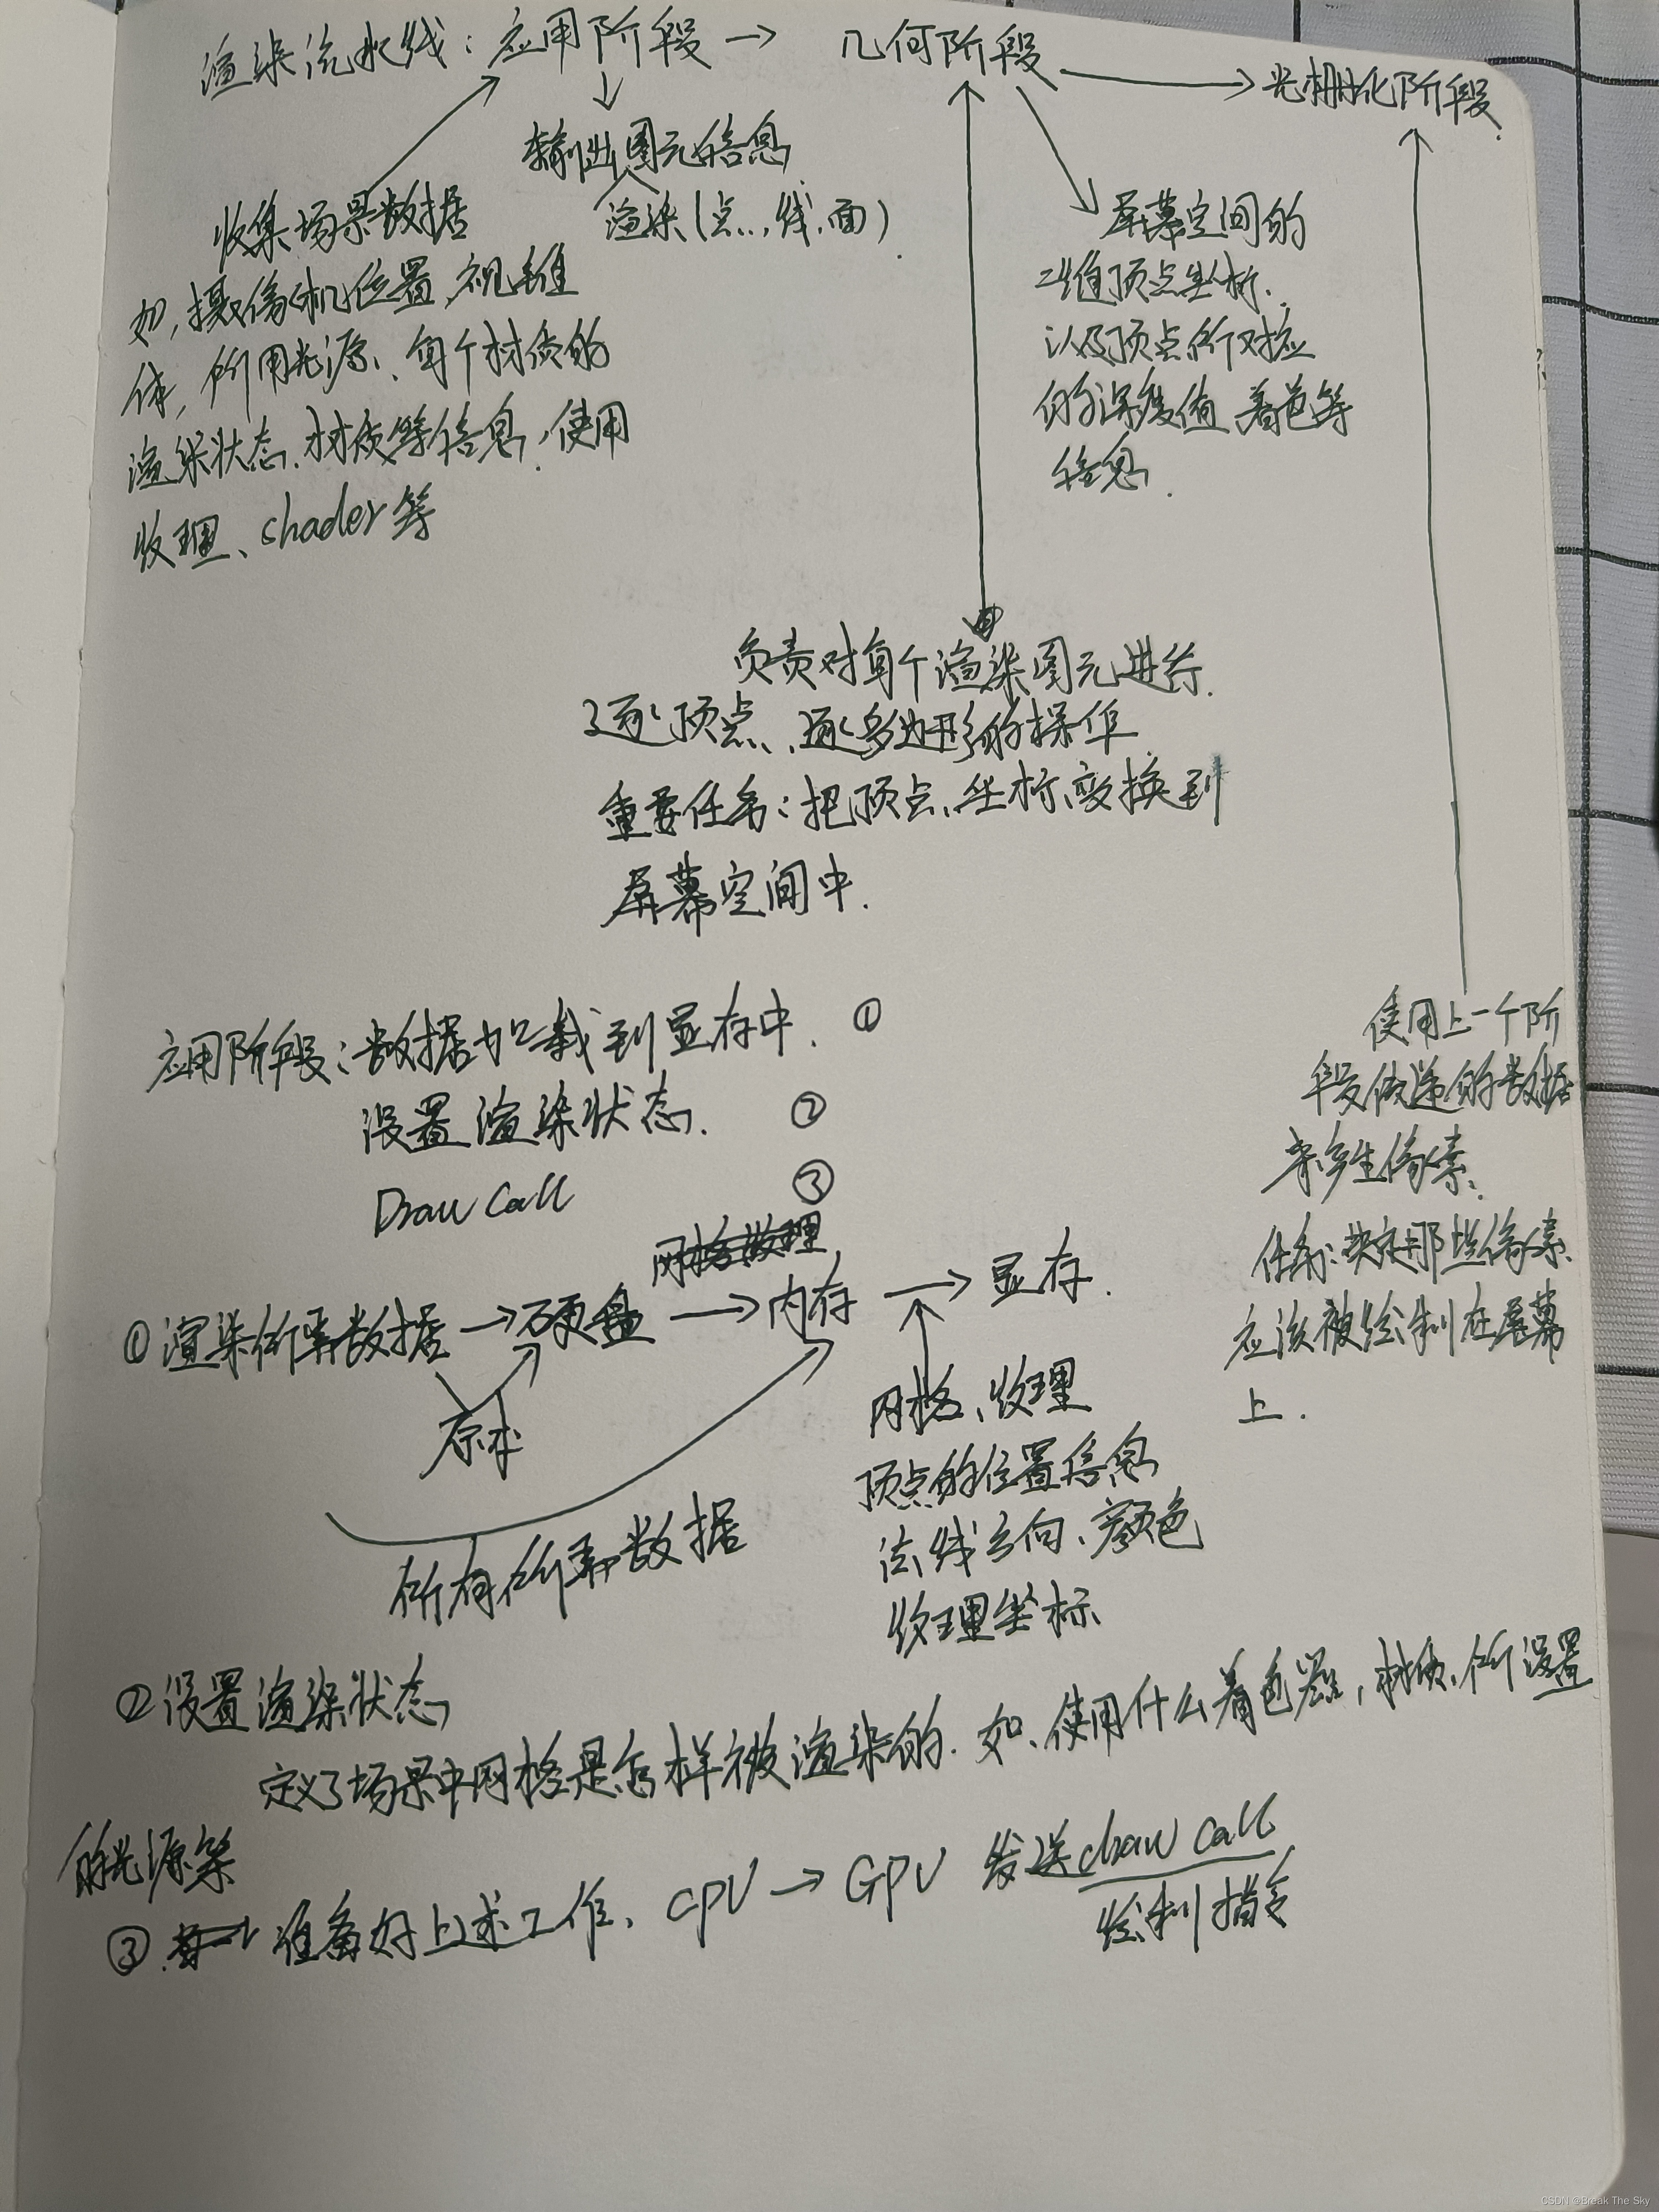 渲染流水线：应用阶段 → 几何阶段 → 光栅化阶段.
输出图元信息
渲染(点.,线.面).
收集场景数据
如,摄像机位置,视锥
体,所用光源、每个材质的
渲染状态.材质等信息,使用
纹理、shader等
屏幕空间的
二维顶点坐标.
以及顶点所对应
的深度值 着色等
信息.
负责对每个渲染图元进行.
逐顶点、逐多边形的操作.
重要任务：把顶点坐标变换到
屏幕空间中.
应用阶段：数据加载到显存中. ①
设置渲染状态. ②
Draw Call ③
使用上一个阶
段传递的数据
来产生像素.
任务:决定哪些像素
应该被绘制在屏幕
上.
网格纹理
①渲染所需数据 → 硬盘 → 内存 → 显存.
所有所需数据
网格、纹理
顶点的位置信息
法线方向、颜色
纹理坐标
②设置渲染状态
定义了场景中网格是怎样被渲染的.如、使用什么着色器,材质、所设置
的光源等
③ 准备好上述工作、CPU → GPU 发送draw call
绘制指令
CSDN @Break The Sky